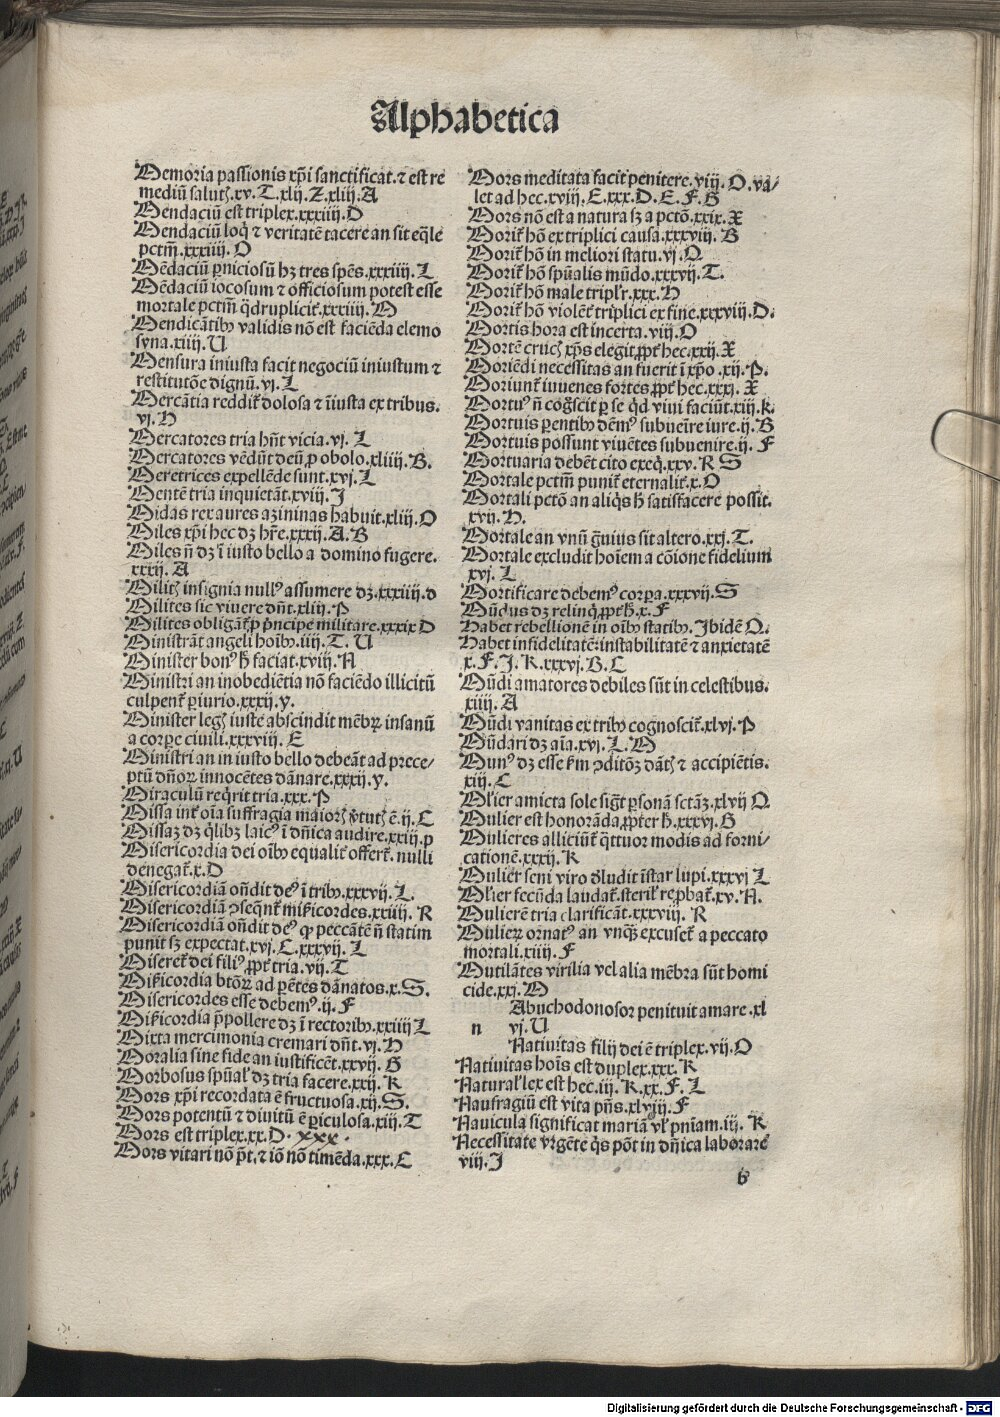 Alphabetica
Memoria passionis xp̄i sanctificat. ⁊ est re
mediū salutꝭ.xv. T.xlij. Z.xliij. A
Mendaciū est triplex.xxxiiij. D
Mendaciū loq̄ ⁊ veritatē tacere an sit eq̄le
pctm̄.xxxiiij. O
Mēdaciū ꝑniciosū hꝫ tres spēs.xxxiiij. L
Mēdaciū iocosum ⁊ officiosum potest esse
mortale pctm̄ q̄druplicit̄.xxxiiij. M
Mendicātibꝰ validis nō est faciēda elemo
syna.xiiij. U
Mensura iniusta facit negociū iniustum ⁊
restitutōe dignū.vj. L
Mercātia reddit̄ dolosa ⁊ īiusta ex tribus.
vj. H
Mercatores tria hn̄t vicia.vj. L
Mercatores vēdūt deū ꝓ obolo.xliiij. B.
Meretrices expellēde sunt.xvj. L
Mentē tria inquietāt.xviij. J
Midas rex aures azininas habuit.xlij. O
Miles xp̄i hec dꝫ hr̄e.xxxij. A. B
Miles n̄ dꝫ ī iusto bello a domino fugere.
xxxij. A
Militꝭ insignia nullꝰ assumere dꝫ.xxxiiij. d
Milites sic viuere dn̄t.xliij. P
Milites obligāt̄ ꝑ p̄ncipe militare.xxxix D
Ministrāt angeli hoībꝰ.iiij. T. U
Minister bonꝰ h̄ faciat.xviij. N
Ministri an inobediētia nō faciēdo illicitū
culpent̄ ꝑiurio.xxxij. y.
Minister legꝭ iuste abscindit mēbꝝ insanū
a corpe ciuili.xxxviij. E
Ministri an in iusto bello debeāt ad prece/
ptū dn̄oꝝ innocētes dānare.xxxij. y.
Miraculū reqͥrit tria.xxx. P
Missa int̄ oīa suffragia maiorꝭ v̄tutꝭ ē.ij. C
Missaꝫ dꝫ qͥlibꝫ laicꝰ ī dn̄ica audire.xxiij. p
Misericordia dei oībꝰ equalit̄ offert̄. nulli
denegat̄.x. D
Misericordiā on̄dit deꝰ ī tribꝰ.xxxvij. L.
Misericordiā ꝯseqͥnt̄ mīsericordes.xxiiij. R
Misericordiā on̄dit deꝰ ꝙ peccātē n̄ statim
punit sꝫ expectat.xvj. C.xxxvij. L
Miseret̄ dei filiꝰ ꝓpt̄ tria.vij. T
Mīsericordia btōꝝ ad parētes dānatos.x. S.
Misericordes esse debemꝰ.ij. F
Mīsericordia p̄pollere dꝫ ī rectoribꝰ.xxiiij L
Mixta mercimonia cremari dn̄t.vj. H
Moralia sine fide an iustificēt.xxvij. G
Morbosus spūal̄ dꝫ tria facere.xxij. K
Mors xp̄i recordata ē fructuosa.xij. S.
Mors potentū ⁊ diuitū ē ꝑiculosa.xiij. T
Mors est triplex.xx. D. xxx.
Mors vitari nō p̄t. ⁊ iō nō timēda.xxx. C
Mors meditata facit penitere.viij. O. va/
let ad hec.xviij. E.xxx. D. E. F. G
Mors nō est a natura sꝫ a pctō.xxix. X
Morit̄ hō ex triplici causa.xxxviij. B
Morit̄ hō in meliori statu.vj. Q
Morit̄ hō spūalis mūdo.xxxvij. T.
Morit̄ hō male triplr̄.xxx. H
Morit̄ hō violēt̄ triplici ex fine.xxxviij. D.
Mortis hora est incerta.viij. O
Mortē crucꝭ xp̄s elegit ꝓpt̄ hec.xxij. X
Moriēdi necessitas an fuerit ī xp̄o.xij. P.
Moriunt̄ iuuenes fortes ꝓpt̄ hec.xxxj. X
Mortuꝰ n̄ cōgscit ꝑ se qͥd viui faciūt.xiij. k.
Mortuis parentibꝰ dēmꝰ subueīre iure.ij. B
Mortuis possunt viuētes subuenire.ij. F
Mortuaria debēt cito exeqͥ.xxv. R S
Mortale pctm̄ punit̄ eternalit̄.x. O
Mortali pctō an aliqͥs h̄ satisfacere possit.
xvij. H.
Mortale an vnū gͣuius sit altero.xxj. T.
Mortale excludit hoīem a cōione fidelium
xvj. L
Mortificare debemꝰ corpa.xxxvij. S
Mūdus dꝫ relinqͥ ꝓpt̄ h̄.x. F
Habet rebellionē in oībꝰ statibꝰ. Jbidē Q.
Habet infidelitatē: instabilitatē ⁊ anxietatē
x. F. J. K.xxxvj. B. C
Mūdi amatores debiles sūt in celestibus.
xiiij. A
Mūdi vanitas ex tribꝰ cognoscit̄.xlvj. P
Mūdari dꝫ aīa.xvj. L. M
Munꝰ dꝫ esse ẜm ꝯditōꝫ dātꝭ ⁊ accipiētis.
xiij. C
Mlier amicta sole sigͭ personā sctāꝫ.xlvij Q
Mulier est honorāda ꝓpter h̄.xxxvj. G
Mulieres alliciūt q̄ttuor modis ad forni/
cationē.xxxij. K
Mulier seni viro dludit īstar lupi.xxxvj L
Mlier fecūda laudat̄. steril̄ rephat̄.xv. N.
Mulierē tria clarificāt.xxxviij. R
Mulieꝝ ornatꝰ an vnqͣꝫ excuset̄ a peccato
mortali.xiiij. F
Mutilātes virilia vel alia mēbra sūt homi
cide.xxj. M
Abuchodonosor penituit amare.xl
n vj. U
Natiuitas filij dei ē triplex.vij. O
Natiuitas hoīs est duplex.xxx. K
Natural̄ lex est hec.iij. K.xx. F. L
Naufragiū est vita pn̄s.xlviij. F
Nauicula significat mariā vl̄ pn̄iam.iij. K
Necessitate vrgēte qͥs pōt in dn̄ica laborare
viij. J
b
Digitalisierung gefördert durch die Deutsche Forschungsgemeinschaft - DFG